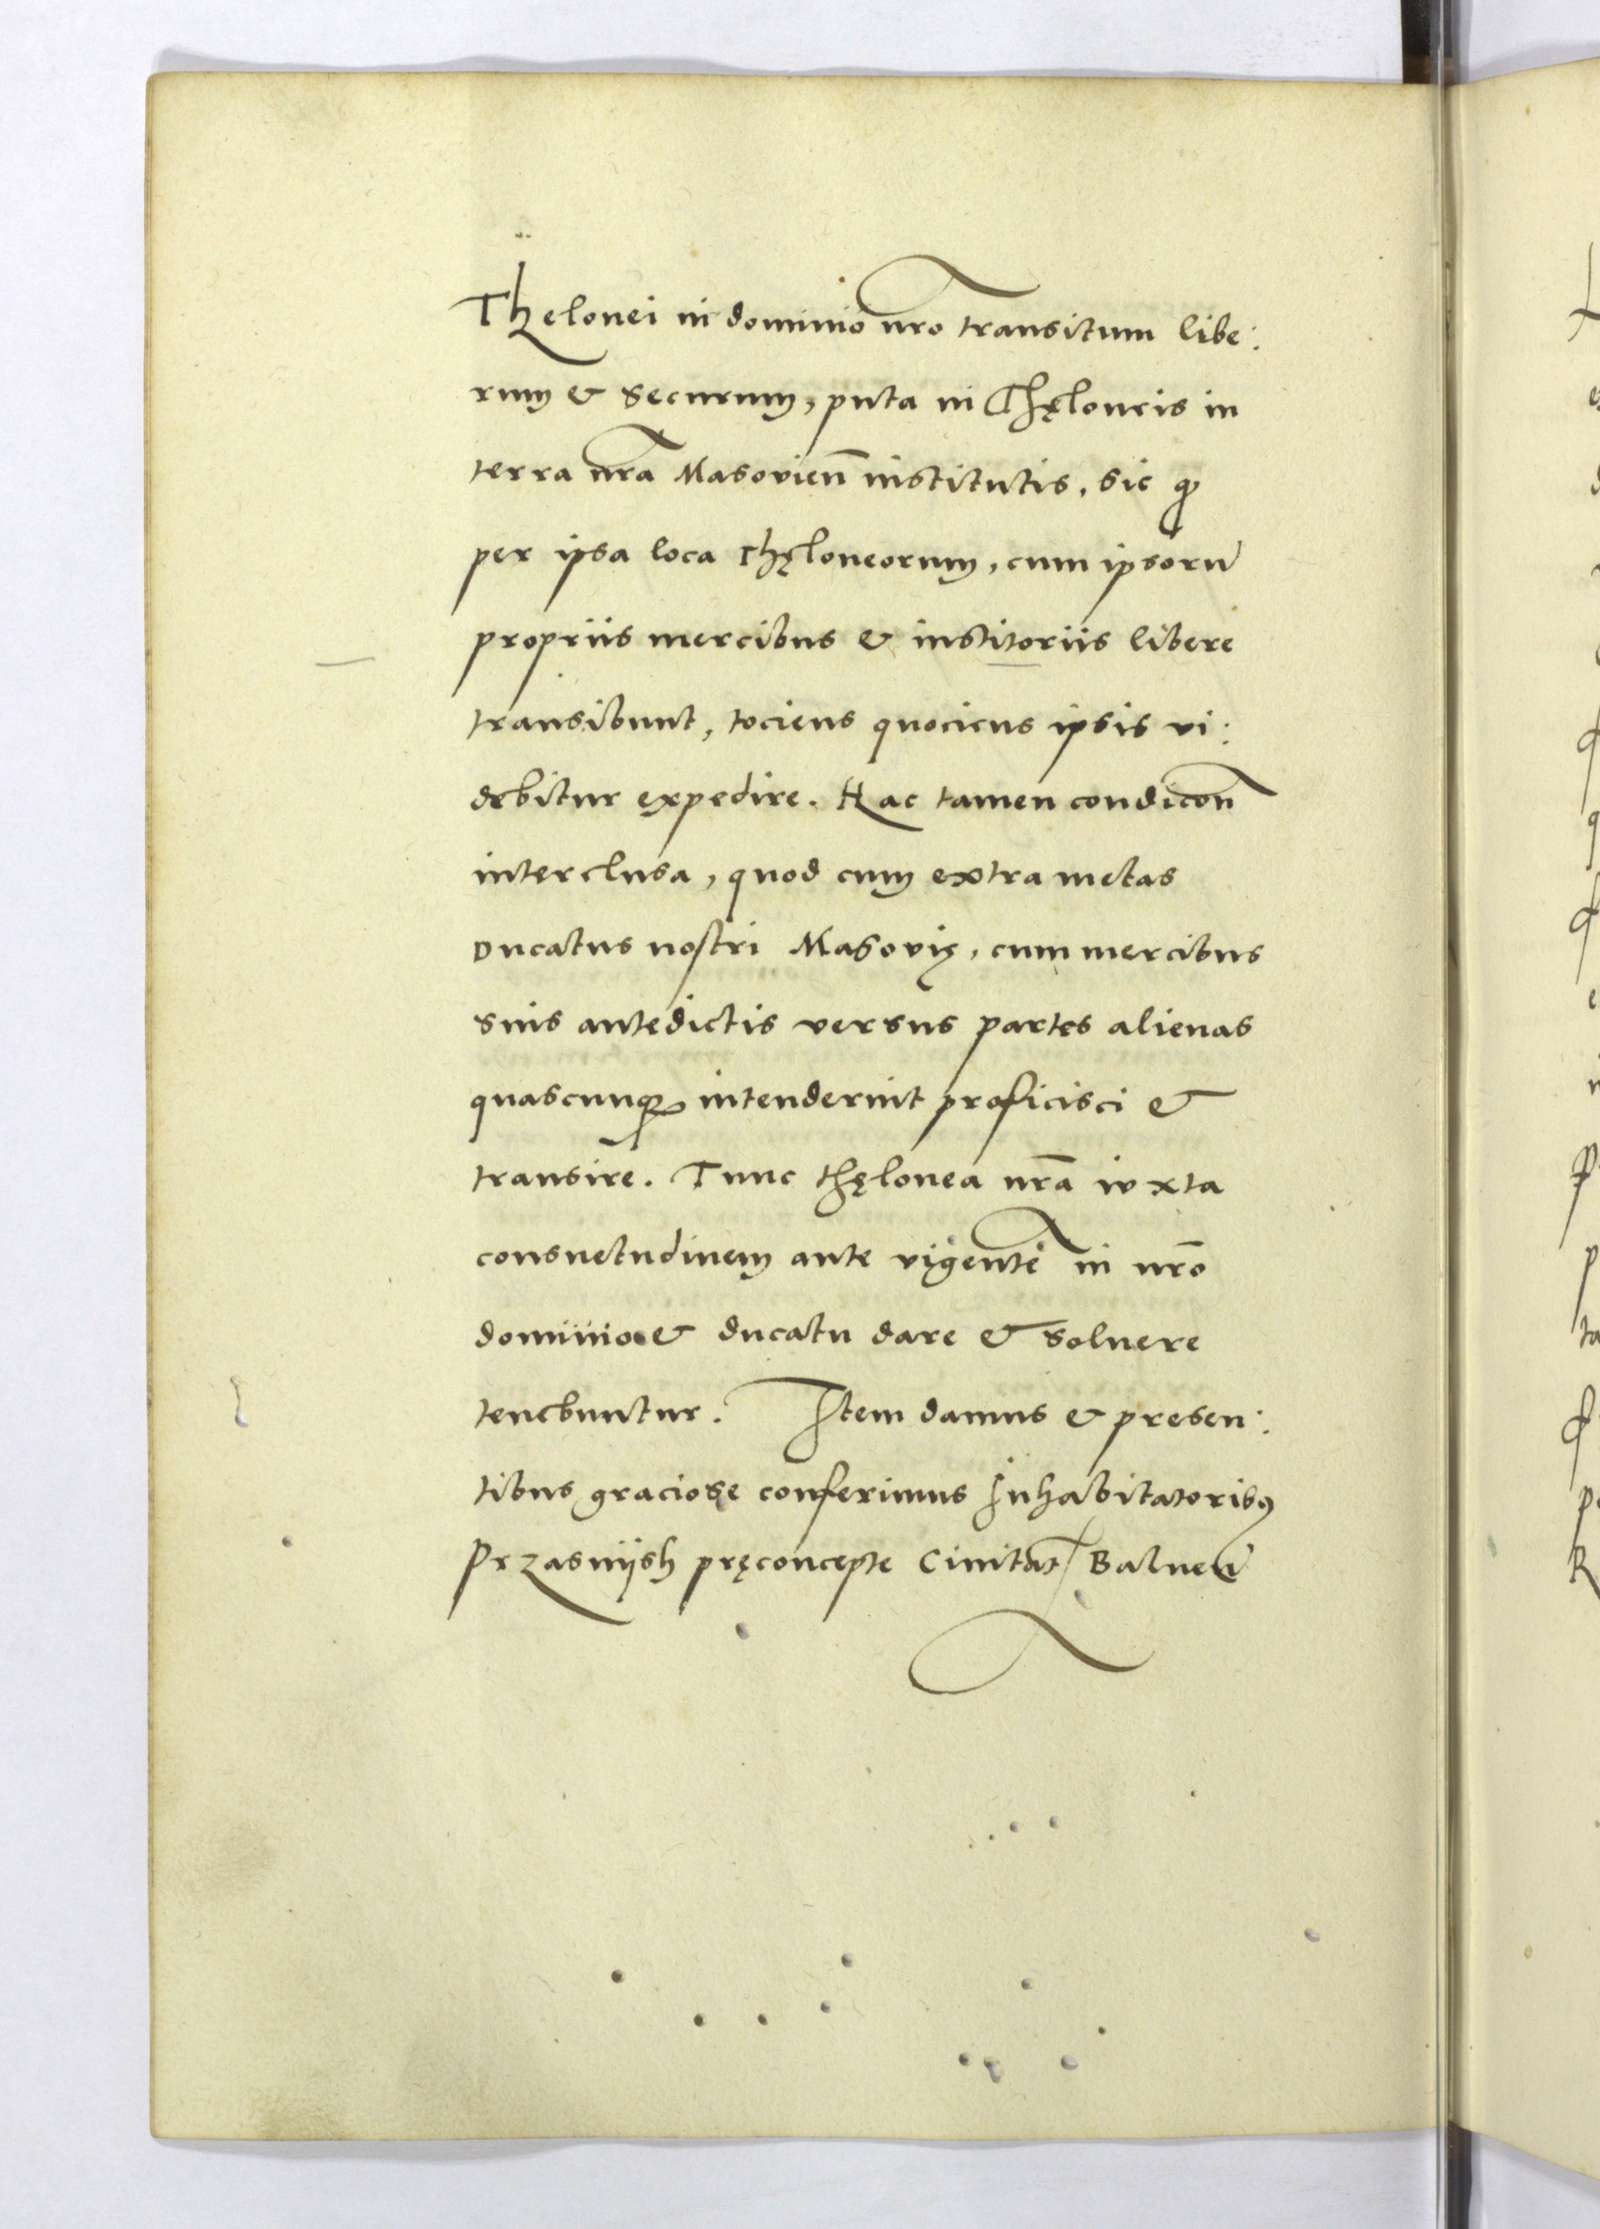 Thelonei in dominio nr̄o transitum libe:
rum & securum, puta in Thęloneis in
terra nr̄a Masovien̄ institutis, sic ꝙ
per ipsa loca thęloneorum, cum ipsorū
propriis mercibus & institoriis libere
transibunt, tociens quociens ipsis vi:
debitur expedire. Hac tamen condicōn
interclusa, quod cum extra metas
Ducatus nostri Masovię, cum mercibus
suis antedictis versus partes alienas
quascunqꝫ intenderint proficisci &
transire. Tunc thęlonea nr̄a iuxta
consuetudinem ante vigentē in nr̄o
dominio & ducatu dare & soluere
tenebuntur. Item damus & presen:
tibus graciose conferimus Inhabitatoribꝰ
Przasnijsh pręconcepte Ciuitat Balneū